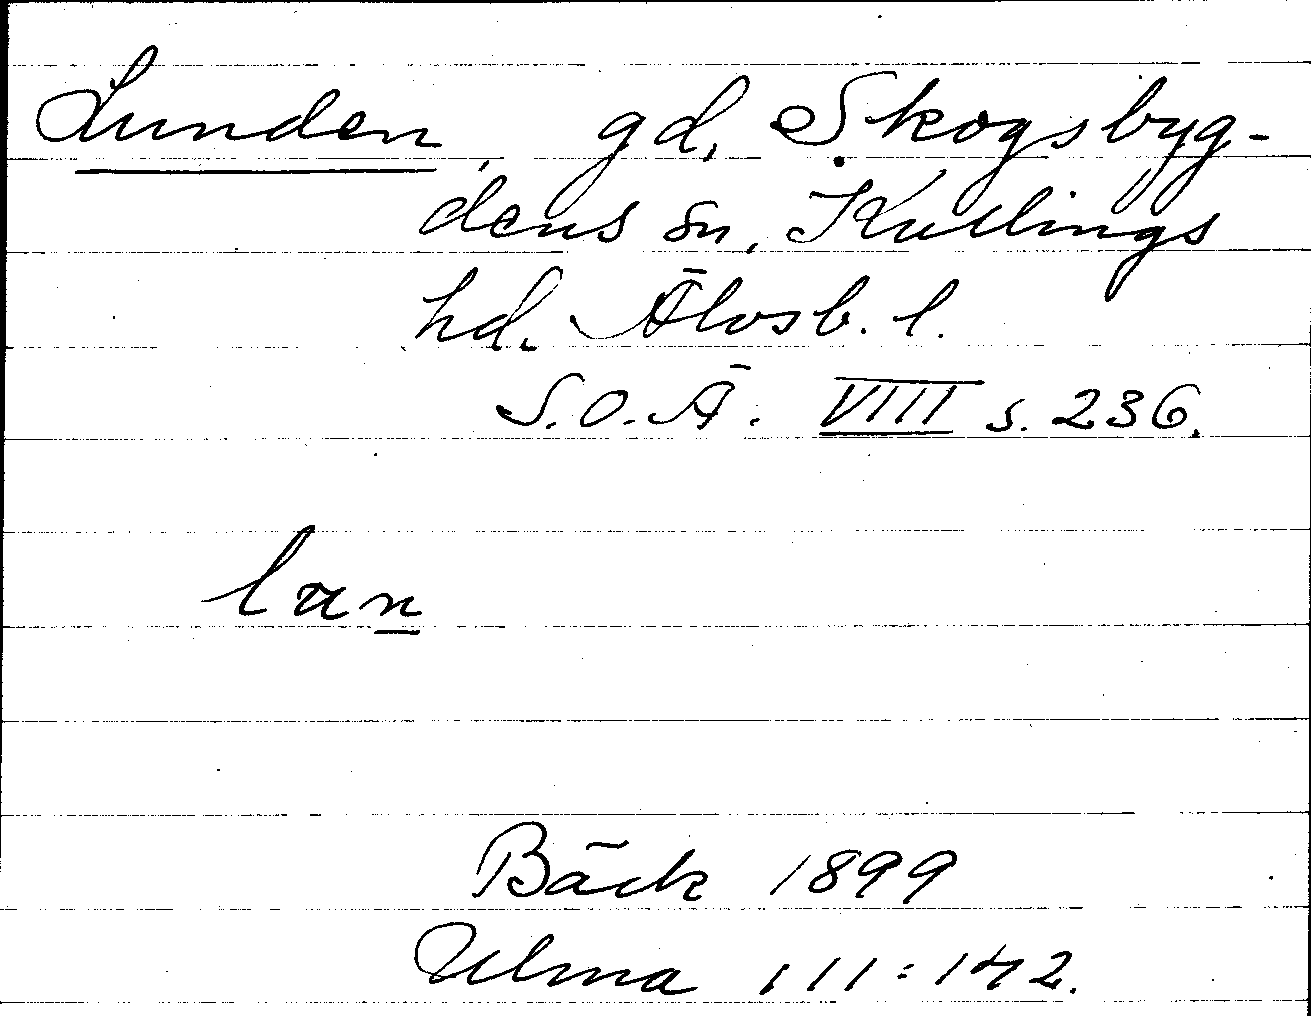 Lunden, gd, Skogsbyg-
dens sn, Kullings
hd. Älvsb. l.
S.O.Ä. VIII s. 236.
lun
Bäck 1899
Ulma 111:142.